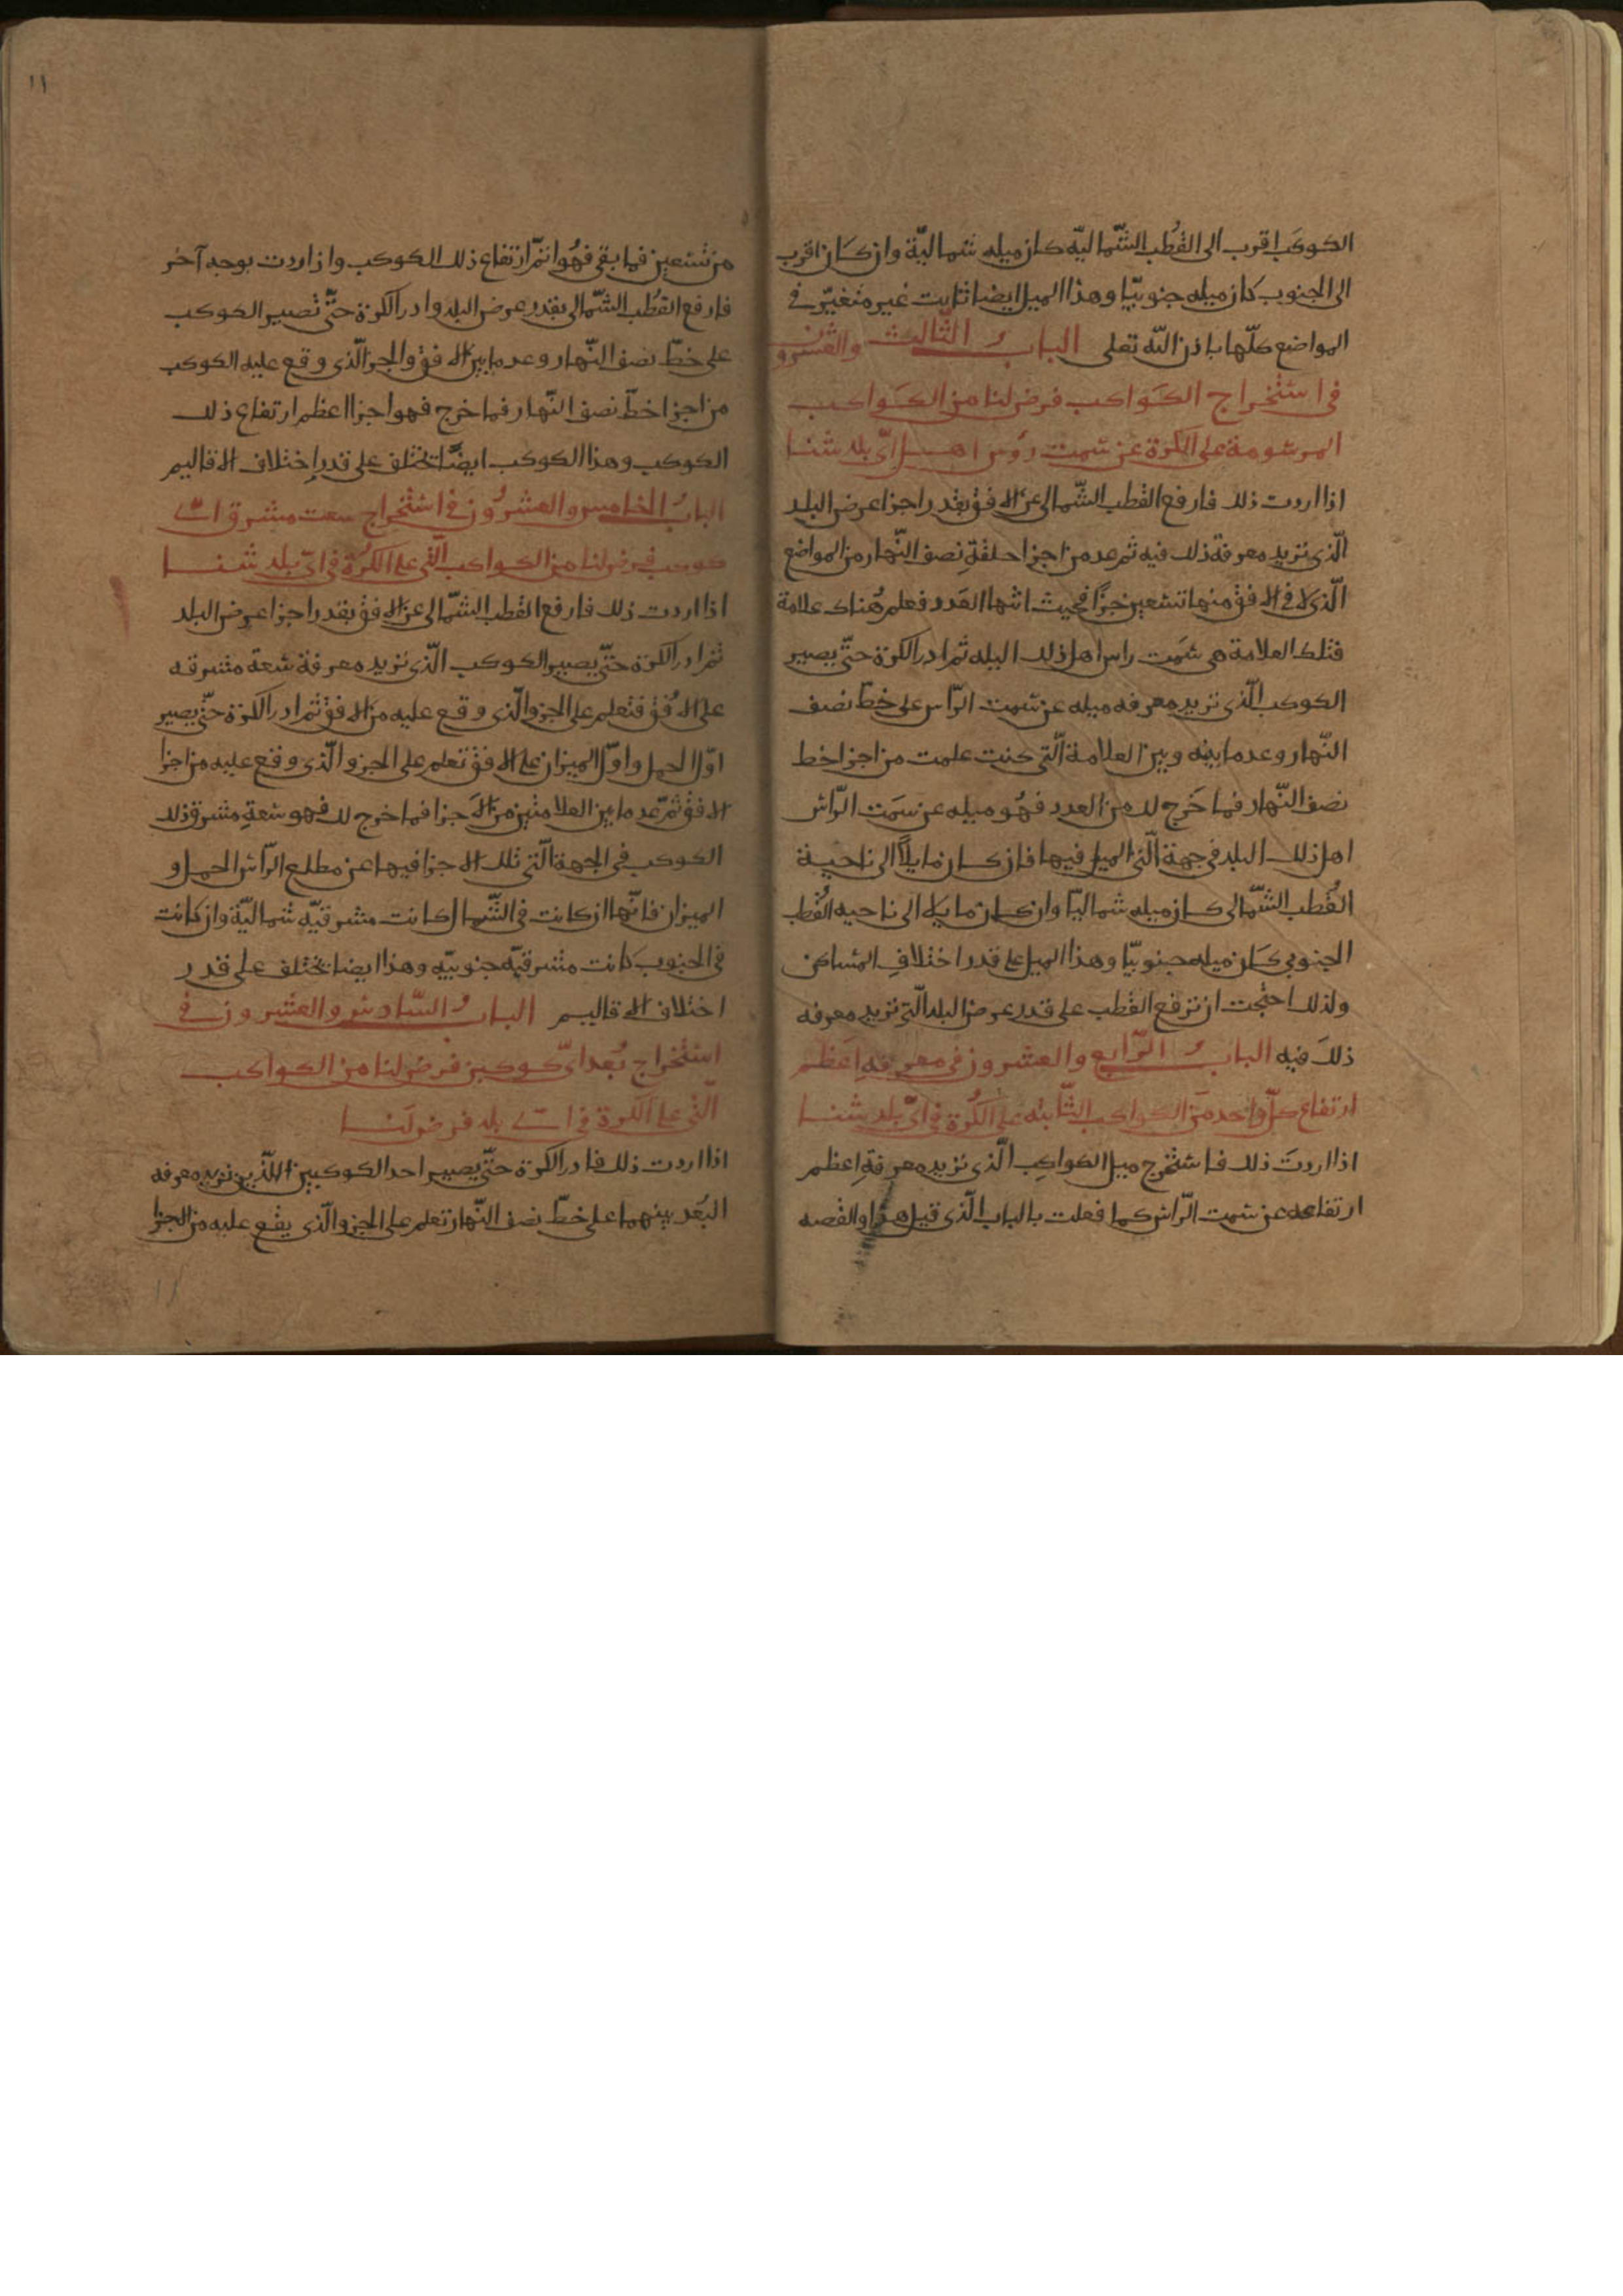 الكوكب اقرب الى القُطب الشّماليّه كان ميله شماليّة وان كان اقرب
الى الجنوب كان ميله جنوبيّا وهذا الميل ايضا ثابت غير متغيّر في
المواضع كلّها باذن الله تعلى الباب الثّالث والعشرون
في استخراج الكَواكب فرض لنا من الكَواكب
المرسومة على الكرة عن سمت روس اهل ايّ بلد شئنا
اذا اردت ذلك فارفع القطب الشّمالي عن الافق بقدر اجزا عرض البلد
الّذي تريد معرفة ذلك فيه ثم عد من اجزا حلقةِ نصف النّهار من المواضع
الّذي لا في الافق منها تسعين جزًا فحيث انتها العَدد فعلم هُناك علامة
فتلك العلامة هي سَمت راس اهل ذلك البله ثم ادر الكرة حتّى يصير
الكوكب الّذي تريد معرفه ميله عن سمت الرّاس على خطّ نصف
النّهار وعد ما بينه وبين العلامة الّتي كنت علمت من اجزا خط
نصف النّهار فما خَرج لك من العدد فهُو ميله عن سَمت الرّاس
اهل ذلك البلد في جهة الّتي الميل فيها فان كان مايلًا الى ناحية
القُطب الشّمالي كان ميله شماليّا وان كان مايلا الى ناحيه القُطب
الجنوبي كان ميله جنوبيّا وهذا الميل على قدر اختلافِ المساكن
ولذلك احتجت ان ترفع القطب على قدر عرض البلد الّتي تريد معرفه
ذلكَ فيه الباب الرّابع والعشرون في معرفةِ اعَظم
ارتفاع كلّ واحد من الكواكب الثّابته على الكُرة في ايّ بلد شئنا
اذا اردتَ ذلك فاستخرج ميل الكواكِب الّذي تريد معرفةِ اعظم
ارتفاعه عن سمت الرّاس كما فعلت بالباب الّذي قبل هذا والقصه
من تسعين فما بقي فهُو اتمّ ارتفاع ذلك الكوكب وان اردت بوجه آخر
فارفع القُطب الشّمالي بقدر عرض البلد وادر الكرة حتّى تصير الكوكب
على خطّ نصف النّهار وعد ما بين الافق والجز الّذي وقع عليه الكوكب
من اجزا خطّ نصف النّهار فما خرج فهو اجزا اعظم ارتفاع ذلك
الكوكب وهذا الكوكب ايضًا تختلف على قدر اِختلاف الاقاليم
البابُ الخامس والعشرُون في استخراج سعت مشرق ايّ
كوكب فرض لنا من الكواكب الّتي على الكُرة في ايّ بلد شئنا
اذا اردت ذلك فارفع القطب الشّمالي عن الافق بقدر اجزا عرض البلد
ثم ادر الكرة حتّى يصير الكوكب الّذي تريد معرفة سعة مشرقه
على الافُق فتعلم على الجزو الّذي وقع عليه من الافق ثم ادر الكرة حتّى يصير
اوّل الحمل واوّل الميزان على الافق تعلم على الجزو الّذي وقع عليه من اجزا
الافق ثمّ عد ما بين العلامتين من الاَجزا فما خرج لك فهو سعةِ مشرق ذلك
الكوكب في الجهة الّتي تلك الاجزا فيها عن مطلع الرّاس الحمل و
الميزان فانّها ان كانت في الشّمال كانت مشرقيّه شماليّة وان كانت
في الجنوب كانت مشرقيّه جنوبيّه وهذا ايضا تختلف على قدر
اختلاف الاقاليم البابُ السّادس والعشرون في
استخراج بُعد ايّ كوكبين فرض لنا من الكواكب
الّتي على الكرة في ايّ بلد فرض لَنا
اذا اردت ذلك فادر الكرة حتّى يصير احد الكوكبين اللّذين تريد معرفه
البُعد بينهما على خطّ نصف النّهار تعلم على الجزو الّذي يقع عليه من الجزا
١١